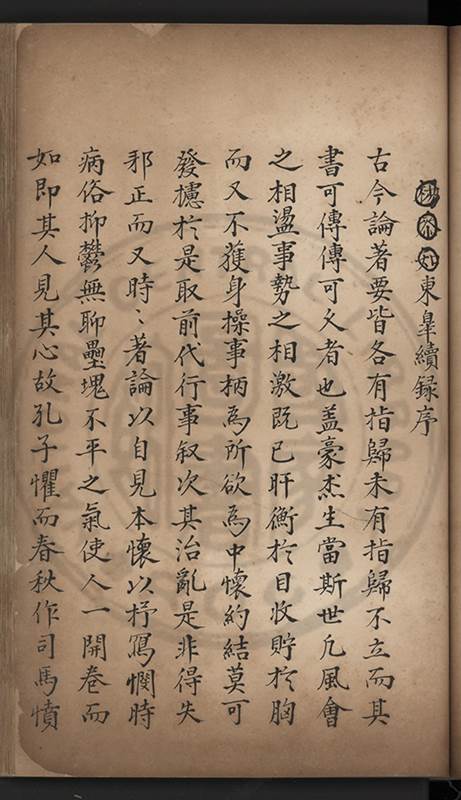 東皐續録序
古今論著要皆各有指歸未有指歸不立而其
書可傳傳可久者也盖豪杰生當斯世凡風會
之相盪事勢之相激既已盱衡扵目收貯扵胸
而又不獲身操事柄為所欲為中懷約結莫可
發攄扵是取前代行事叙次其治亂是非得失
邪正而又時〻著論以自見本懷以抒寫憫時
病俗抑鬱無聊壘塊不平之氣使人一開卷而
如即其人見其心故孔子懼而春秋作司馬憤